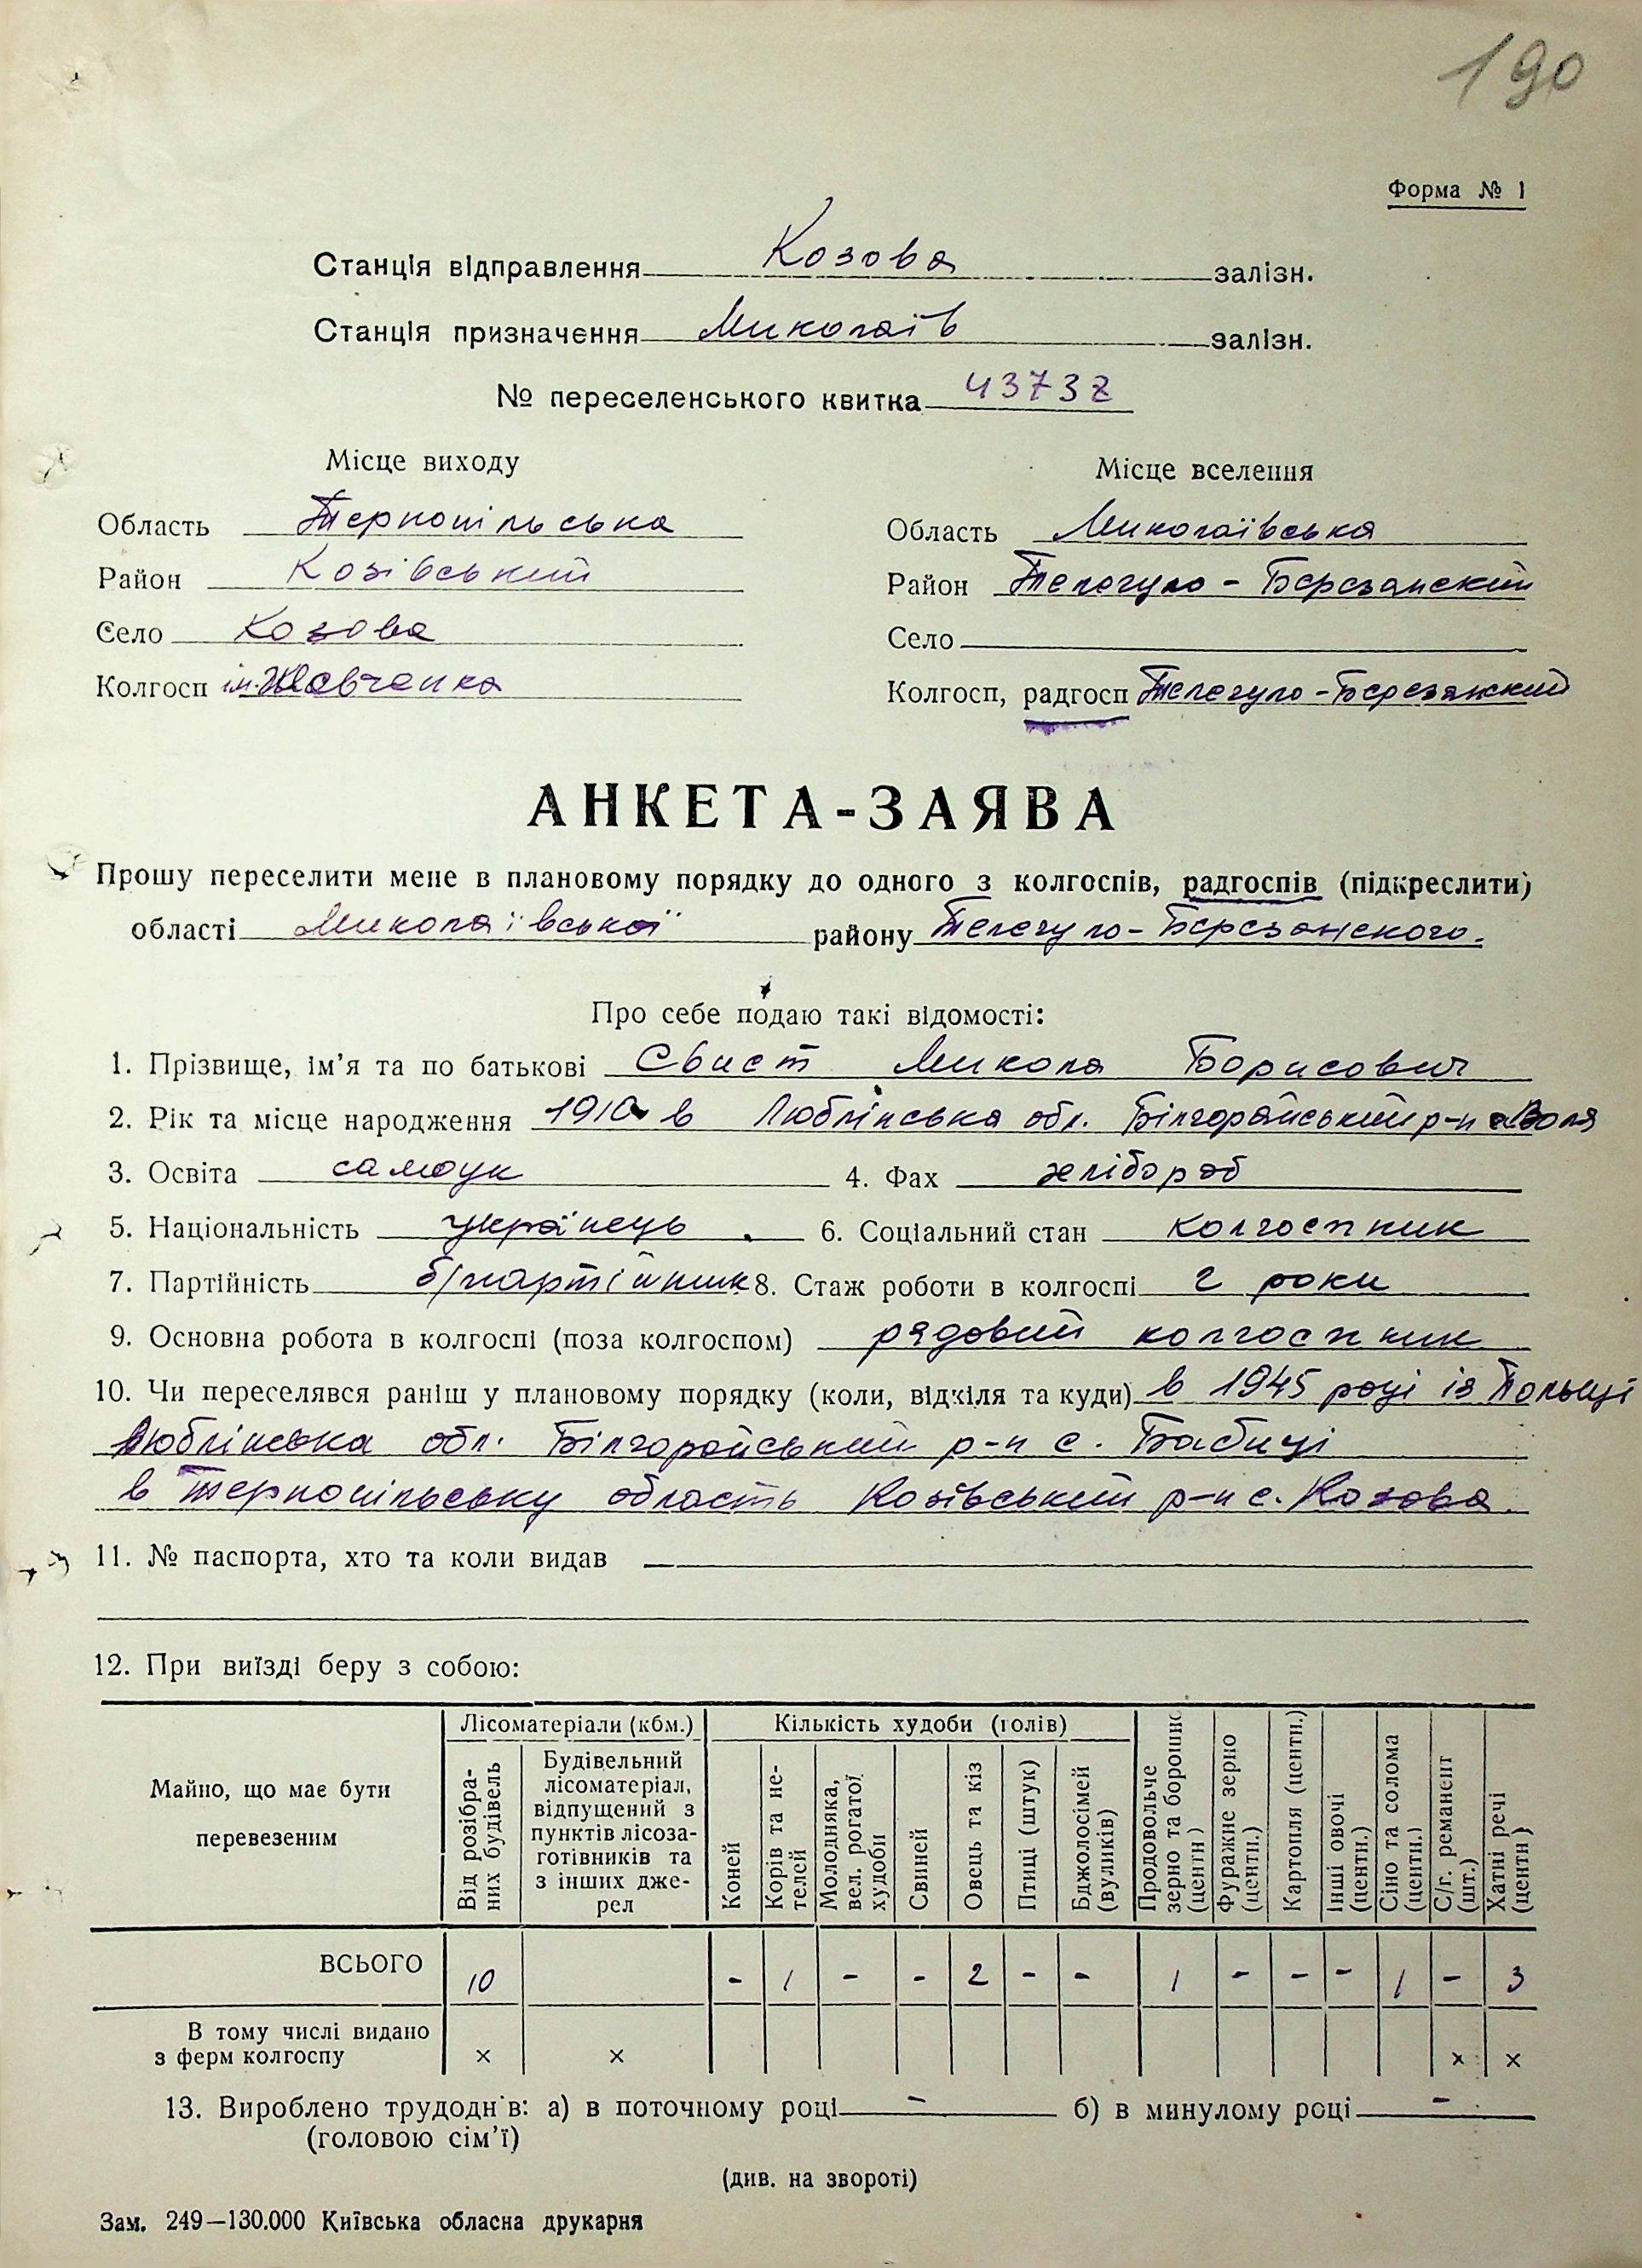 190
Форма № 1
Станція відправлення Козова залізн.
Станція призначення Миколаїв залізн.
№ переселенського квитка 43732
Місце виходу Місце вселення
Область Тернопільська Область Миколаївська
Район Козівський Район Телегуло-Березанский
Село Козова Село
Колгосп ім. Шевченка Колгосп, радгосп Телегуло-Березанский
АНКЕТА-ЗАЯВА
Прошу переселити мене в плановому порядку до одного з колгоспів, радгоспів (підкреслити)
області Миколаївської району Телегуло-Березанского.
Про себе подаю такі відомості:
1. Прізвище, ім'я та по батькові Свист Микола Борисович
2. Рік та місце народження 1910 в Люблінська обл. Білгорайський р-н с. Воля
3. Освіта самоук 4. Фах хлібороб
5. Національність українець 6. Соціальний стан колгоспник
7. Партійність б/партійник 8. Стаж роботи в колгоспі 2 роки
9. Основна робота в колгоспі (поза колгоспом) рядовий колгоспник
10. Чи переселявся раніш у плановому порядку (коли, відкіля та куди) в 1945 році із Польщі
Люблінська обл. Білгорайський р-н с. Бабиці
в Тернопільську область Козівський р-н с. Козова
11. № паспорта, хто та коли видав —
12. При виїзді беру з собою:
Майно, що має бути перевезеним
Лісоматеріали (кбм.)
Від розібраних будівель
Будівельний
лісоматеріал,
відпущений з
пунктів лісоза-
готівників та
з інших дже-
рел
Кількість худоби (голів)
Коней
Корів та не-
телей
Молодняка,
вел. рогатої
худоби
Свиней
Овець та кіз
Птиці (штук)
Бджолосімей
(вуликів)
Продовольче
зерно та борошно
(центн.)
Фуражне зерно
(центн.)
Картопля (центн.)
Інші овочі
(центн.)
Сіно та солома
(центн.)
С/г. реманент
(шт.)
Хатні речі
(центн.)
ВСЬОГО 10 - 1 - - 2 - - 1 - - - 1 - 3
В тому числі видано
з ферм колгоспу × × × ×
13. Вироблено трудоднів: а) в поточному році — б) в минулому році —
(головою сім'ї)
(див. на звороті)
Зам. 249—130.000 Київська обласна друкарня